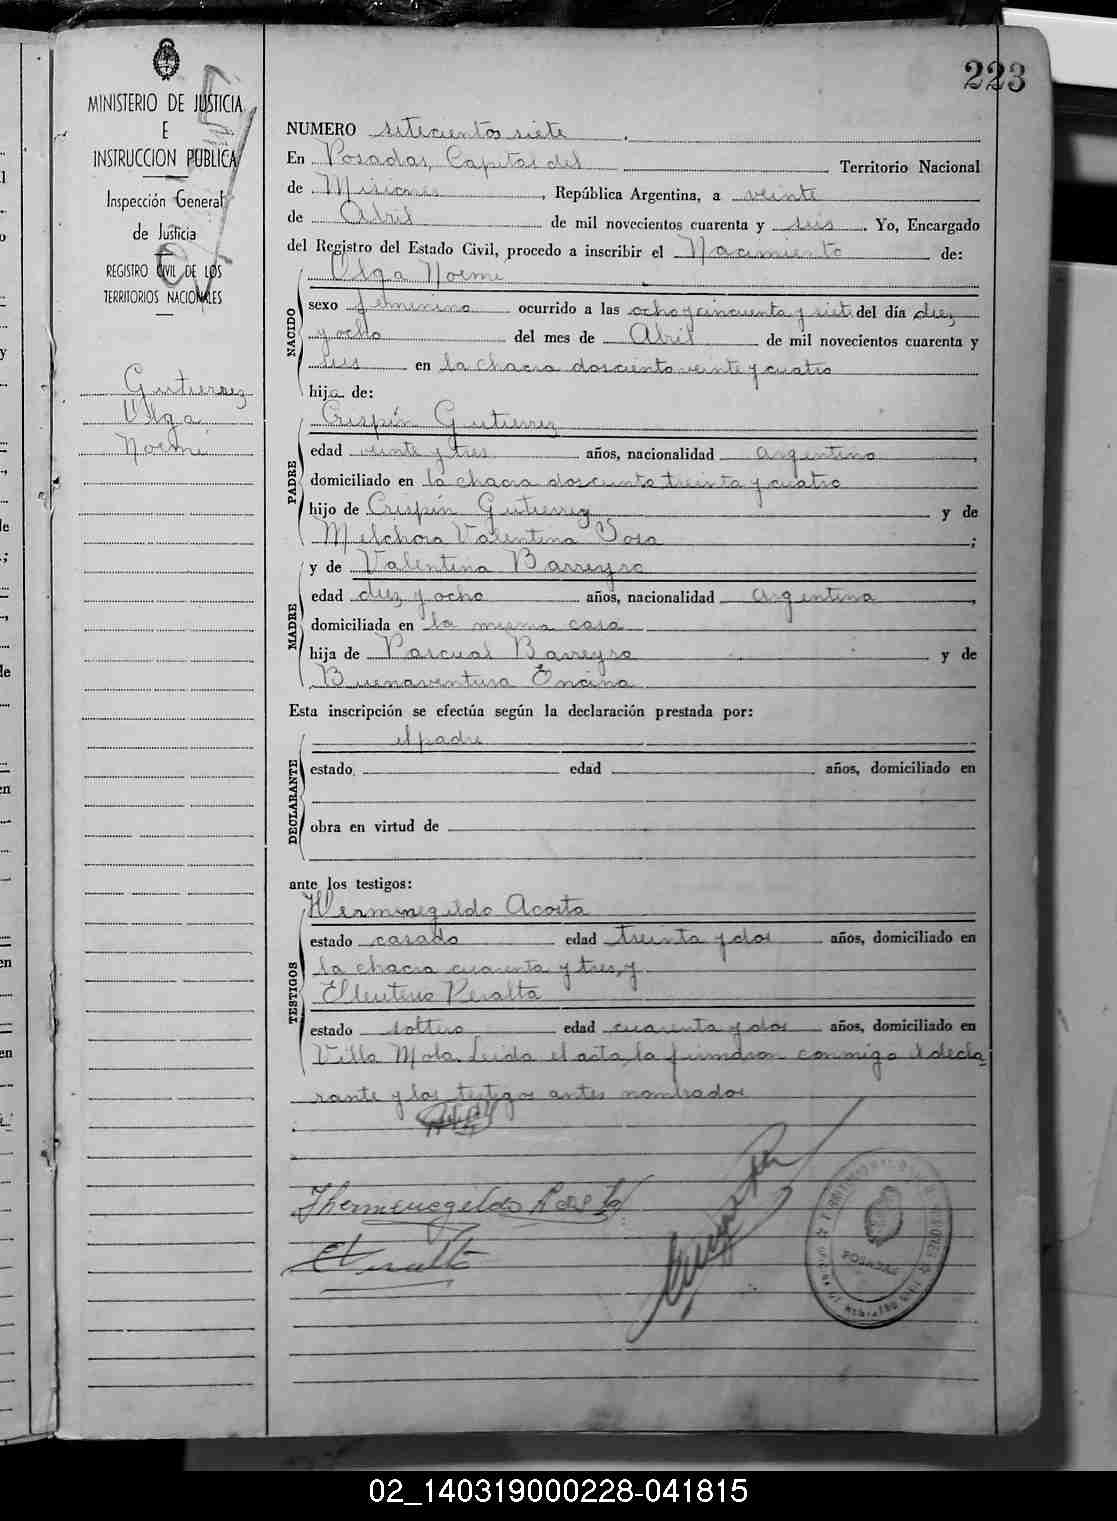 223
MINISTERIO DE JUSTICIA
E
INSTRUCCION PUBLICA
Inspección General
de Justicia
REGISTRO CIVIL DE LOS
TERRITORIOS NACIONALES
Gutierrez
Olga
Noemi
NUMERO setecientos siete
En Posadas, Capital del Territorio Nacional
de Misiones, República Argentina, a veinte
de Abril de mil novecientos cuarenta y seis. Yo, Encargado
del Registro del Estado Civil, procedo a inscribir el Nacimiento de:
Olga Noemi
NACIDO
sexo femenino ocurrido a las ocho y cincuenta y siete del día diez
y ocho del mes de Abril de mil novecientos cuarenta y
seis en la chacra doscientos veinte y cuatro
hija de:
Crispín Gutierrez
PADRE
edad veinte y tres años, nacionalidad argentino,
domiciliado en la chacra doscientos treinta y cuatro
hijo de Crispín Gutierrez y de
Melchora Valentina Sosa;
y de Valentina Barreyro
MADRE
edad diez y ocho años, nacionalidad argentina,
domiciliada en la misma casa
hija de Pascual Barreyro y de
Buenaventura Encina
Esta inscripción se efectúa según la declaración prestada por:
el padre
DECLARANTE
estado edad años, domiciliado en
obra en virtud de
ante los testigos:
Hermenegildo Acosta
TESTIGOS
estado casado edad treinta y dos años, domiciliado en
la chacra cuarenta y tres, y
Eleuterio Peralta
estado soltero edad cuarenta y dos años, domiciliado en
Villa Mola. Leida el acta, la firmaron conmigo el decla-
rante y los testigos antes nombrados
Hermenegildo Acosta
POSADAS
02_140319000228-041815